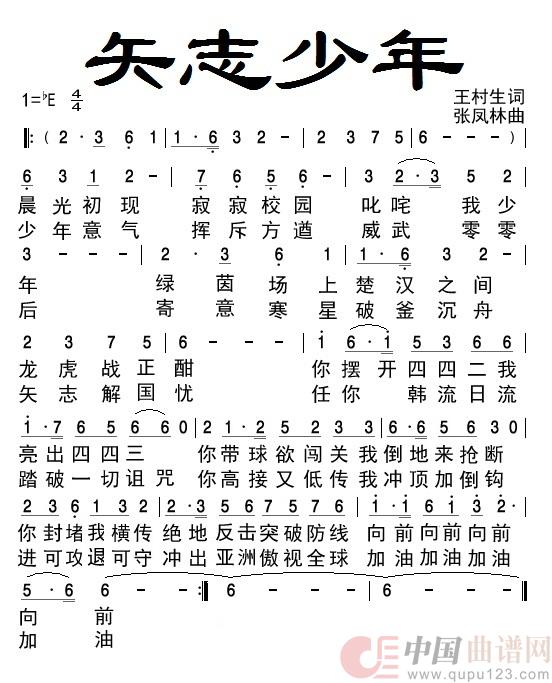 矢志少年
1=♭E 4/4
王村生词
张凤林曲
‖:( 2·3 6 1 | 1·6 3 2 - | 2 3 7 5 | 6 - - ) |
6 3 1 2 - | 7 6 5 6 - | 3 2·3 5 2
晨光初现 寂寂校园 叱咤 我少
少年意气 挥斥方遒 威武 零零
3 - | 2· 3 6 | 1·6 3 2 · 3
年 绿茵场上楚汉之间
后 寄意寒星破釜沉舟
2 3 7 5 | 6 - - | 1 6·1 5 3 6 6
龙虎战正酣 你摆开四四二我
矢志解国忧 任你 韩流日流
1·7 6 5 6 6 0 | 2 1·2 5 2 3 3 | 6·6 5 6 5 3 0 |
亮出四四三 你带球欲闯关我倒地来抢断
踏破一切诅咒 你高接又低传我冲顶加倒钩
2 3 6 1 6 2 | 2·3 5 6 7 5 6 | 1·1 6 1 3 2· |
你封堵我横传 绝地反击突破防线 向前向前向前
进可攻退可守 冲出亚洲傲视全球 加油加油加油
5·6 6 - :‖ 6 - | 6 - | 6 - ‖
向 前
加 油
中国曲谱网
www.qupu123.com